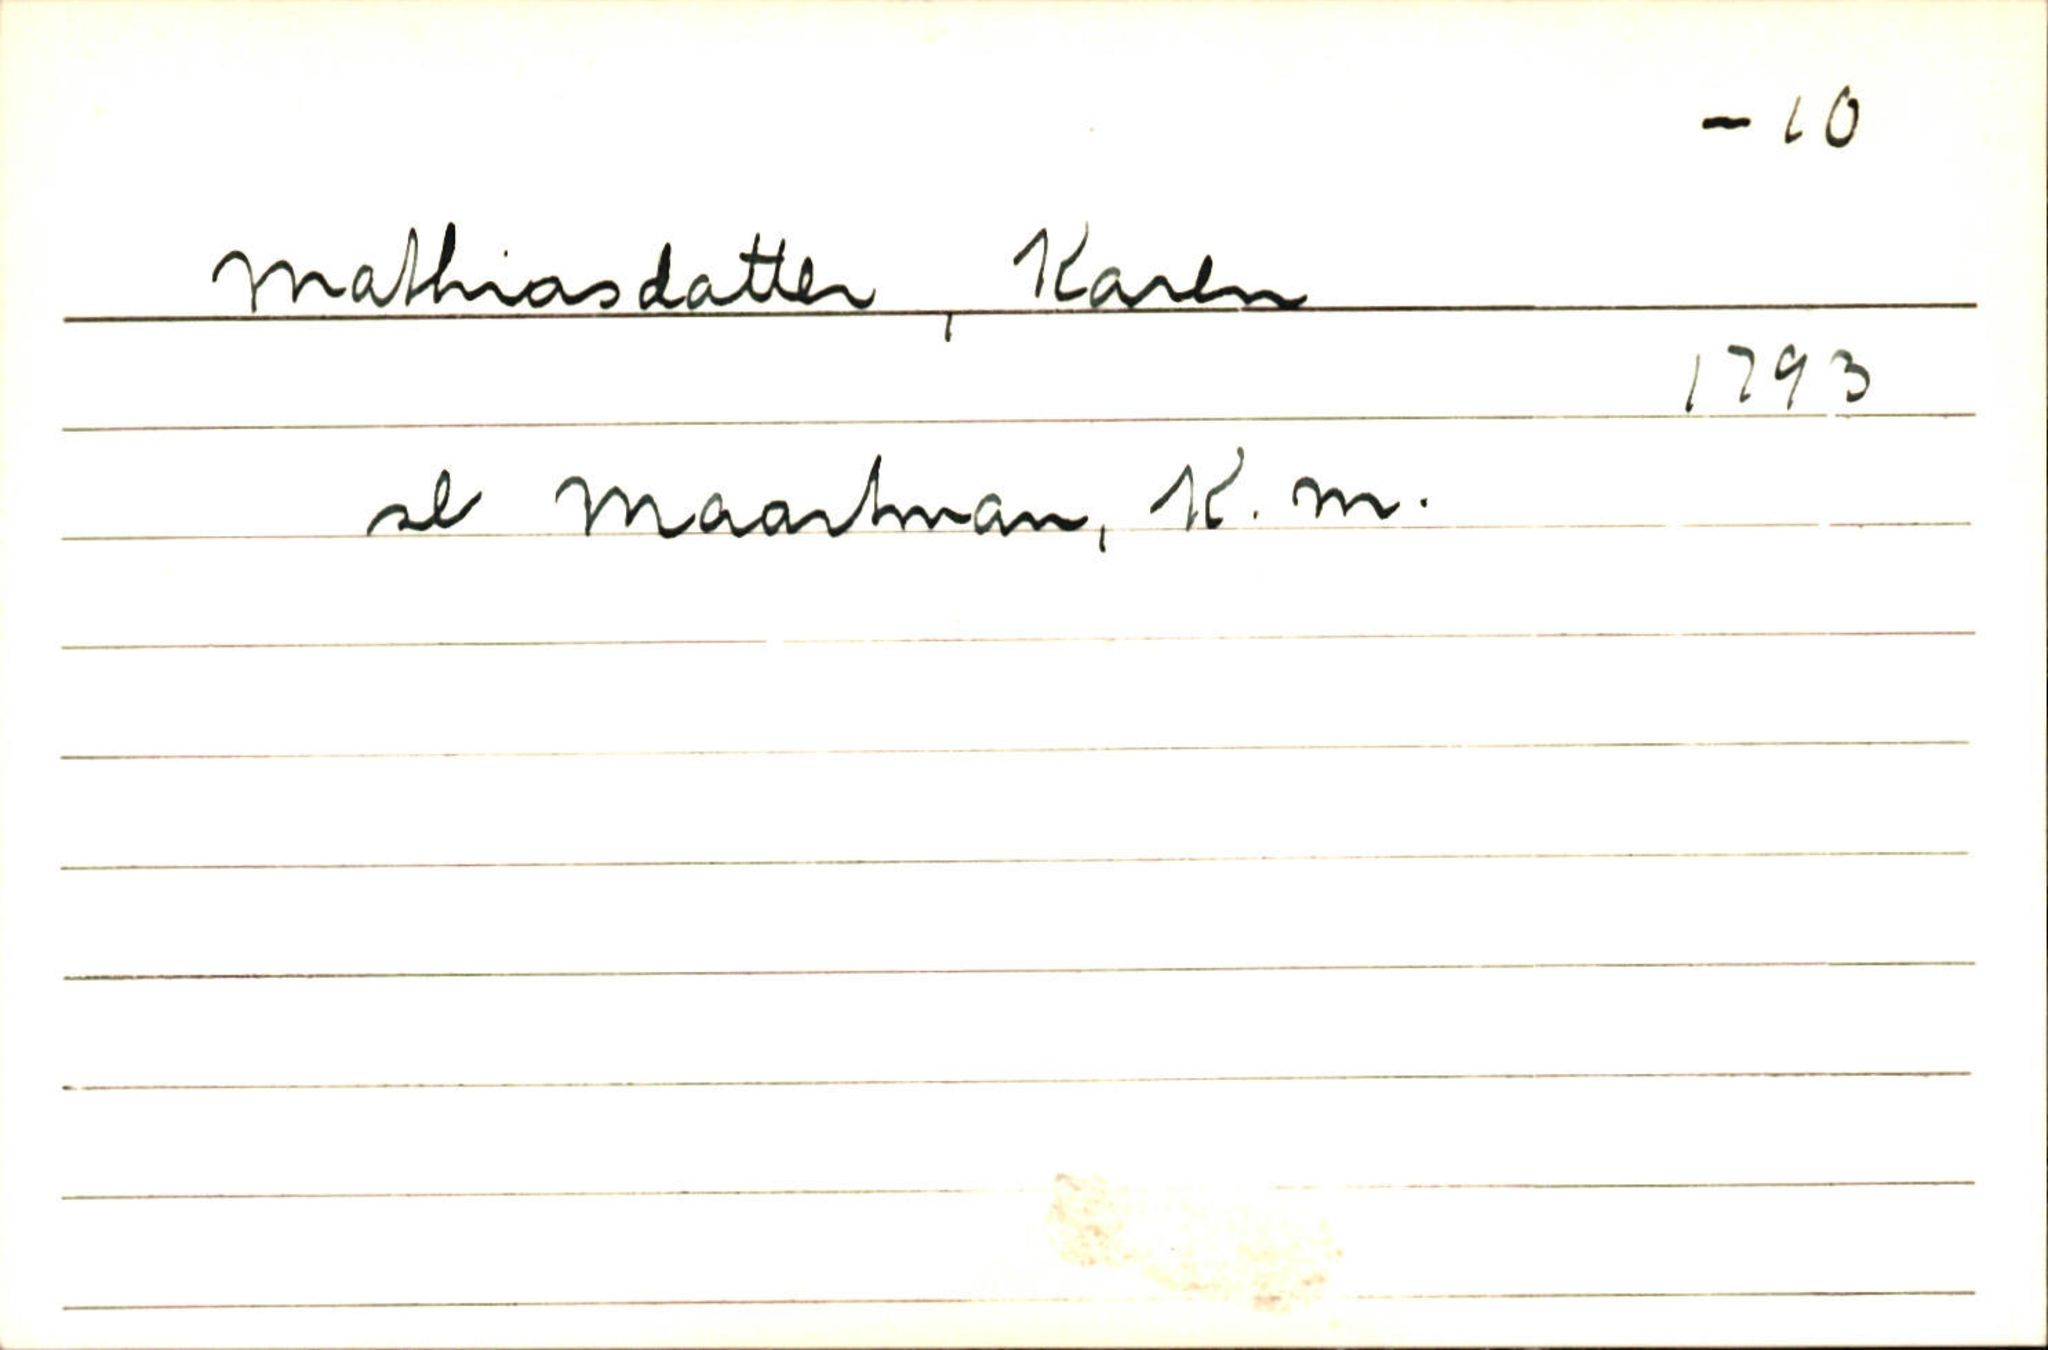 - 10
Mathiasdatter, Karen
1793
se Maartman, K. M.